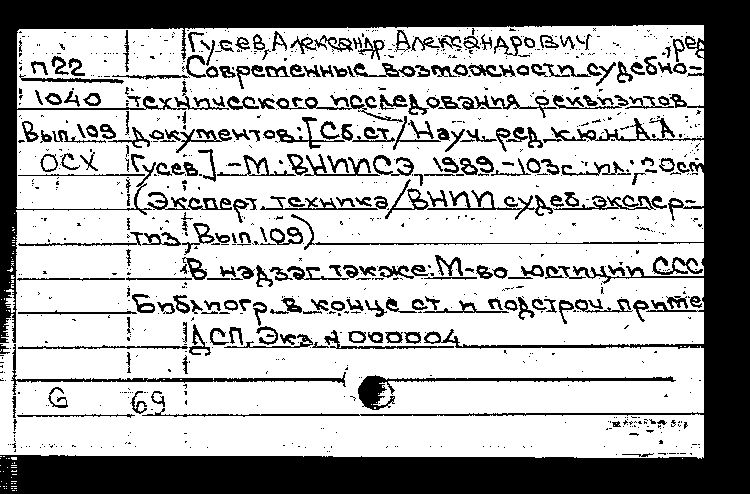 Гусев, Александр Александрович, ред
П22 Современные возможности судебно-
1040 технического исследования реквизитов
Вып.109 документов: [Сб.ст./Науч. ред. к.ю.н. А.А.
ОСХ Гусев]. -М.: ВНИИСЭ, 1989.-103с.: ил.; 20см
(Эксперт. техника/ВНИИ судеб. экспер-
тиз, Вып.109)
В надзаг. также: М-во юстиции ССС
Библиогр. в конце ст. и подстроч. приме
ДСП. Экз. N 000004
G 69